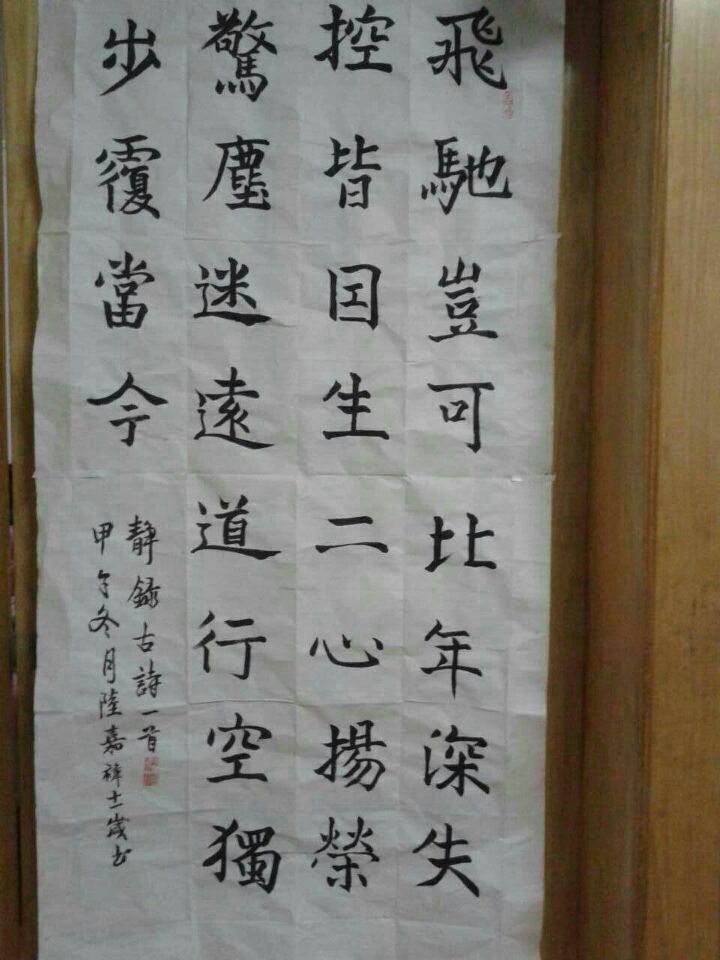 飛馳豈可比年深失
控皆因生二心揚榮
驚塵迷遠道行空獨
步覆當今
靜錄古詩一首
甲午冬月陸嘉祥十一歲书